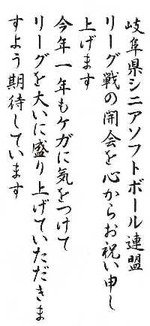 岐阜県シニアソフトボール連盟
リーグ戦の開会を心からお祝い申し
上げます
今年一年もケガに気をつけて
リーグを大いに盛り上げていただきま
すよう期待しています